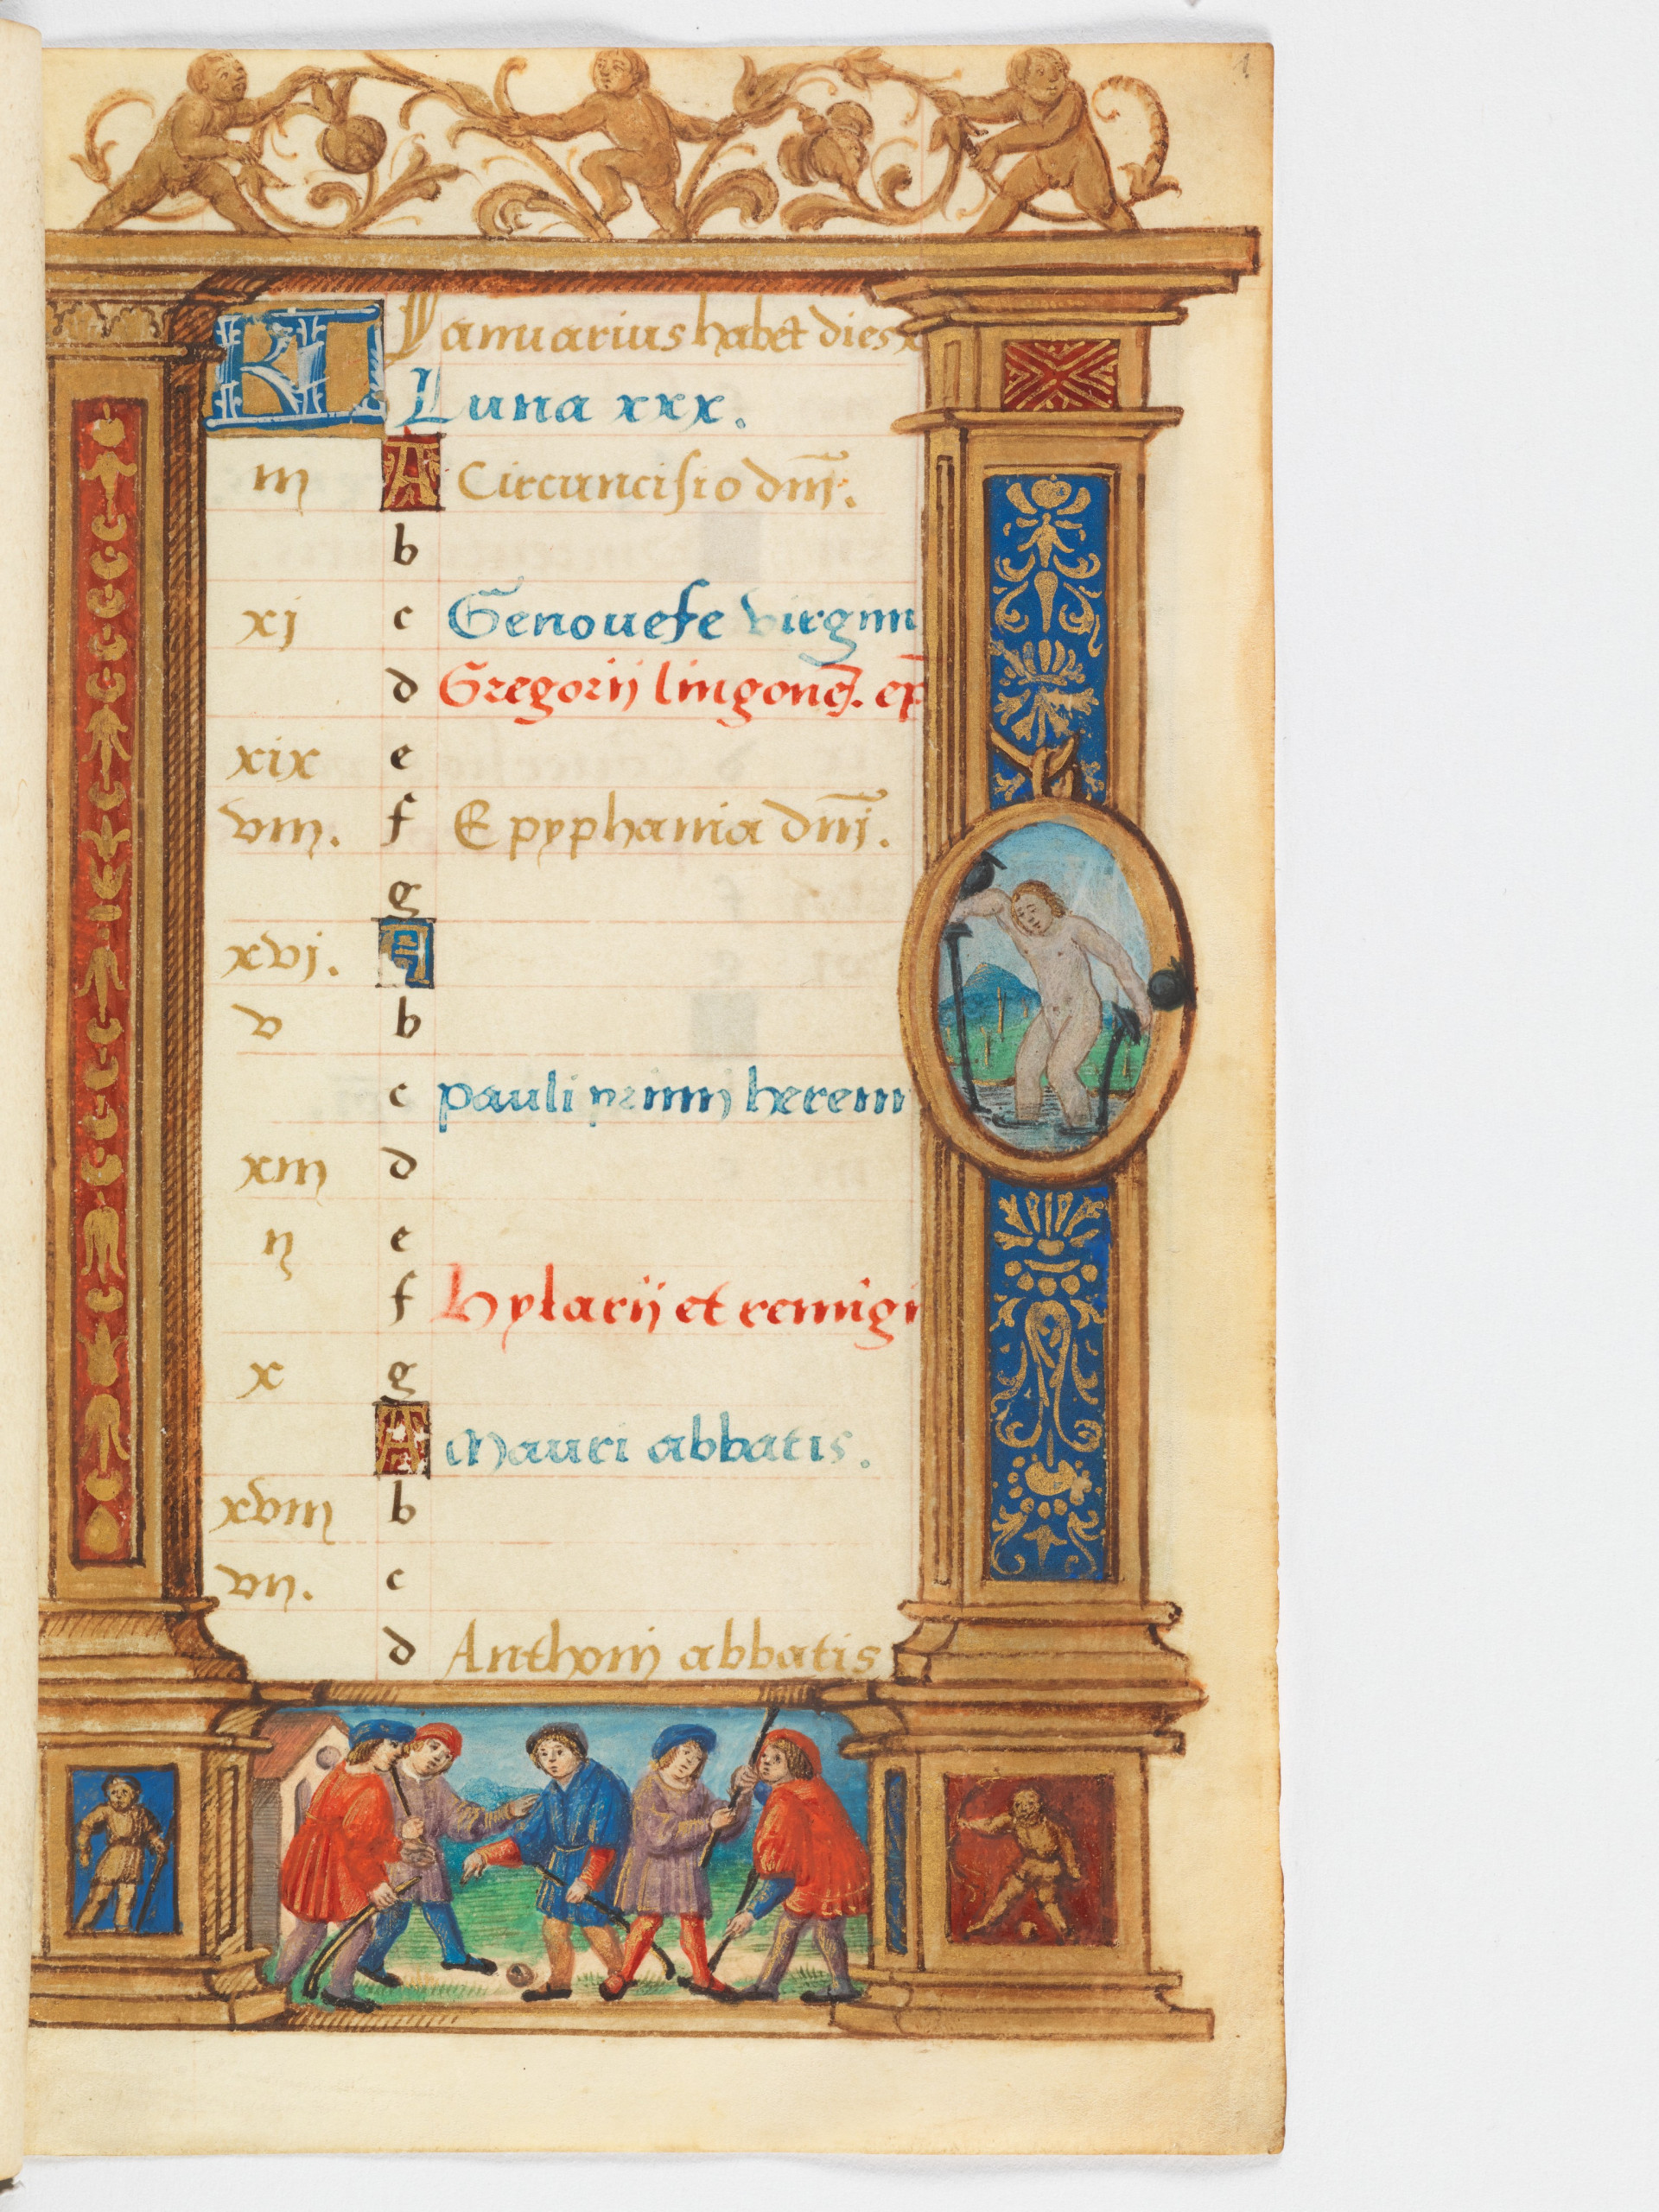 1
KL Januarius habet dies x
Luna xxx.
iii A Circuncisio dni.
b
xj c Genouefe virgini
d Gregorij lingoneñ. ep
xix e
viii. f Epyphania dni.
g
xvj. A
v b
c pauli primi heremi
xiii d
ii e
f Hylarij et remigi
x g
A Mauri abbatis.
xviii b
vii. c
d Anthonij abbatis